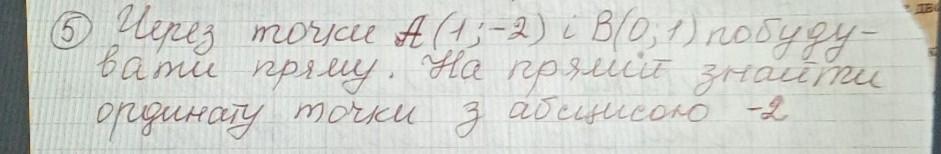 ⑤ Через точки А(1;-2) і В(0;1) побуду-
вати пряму. На прямій знайти
ординату точки з абсцисою -2